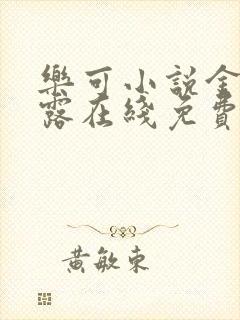 樂可小說金
露在綫免費
黃敏東